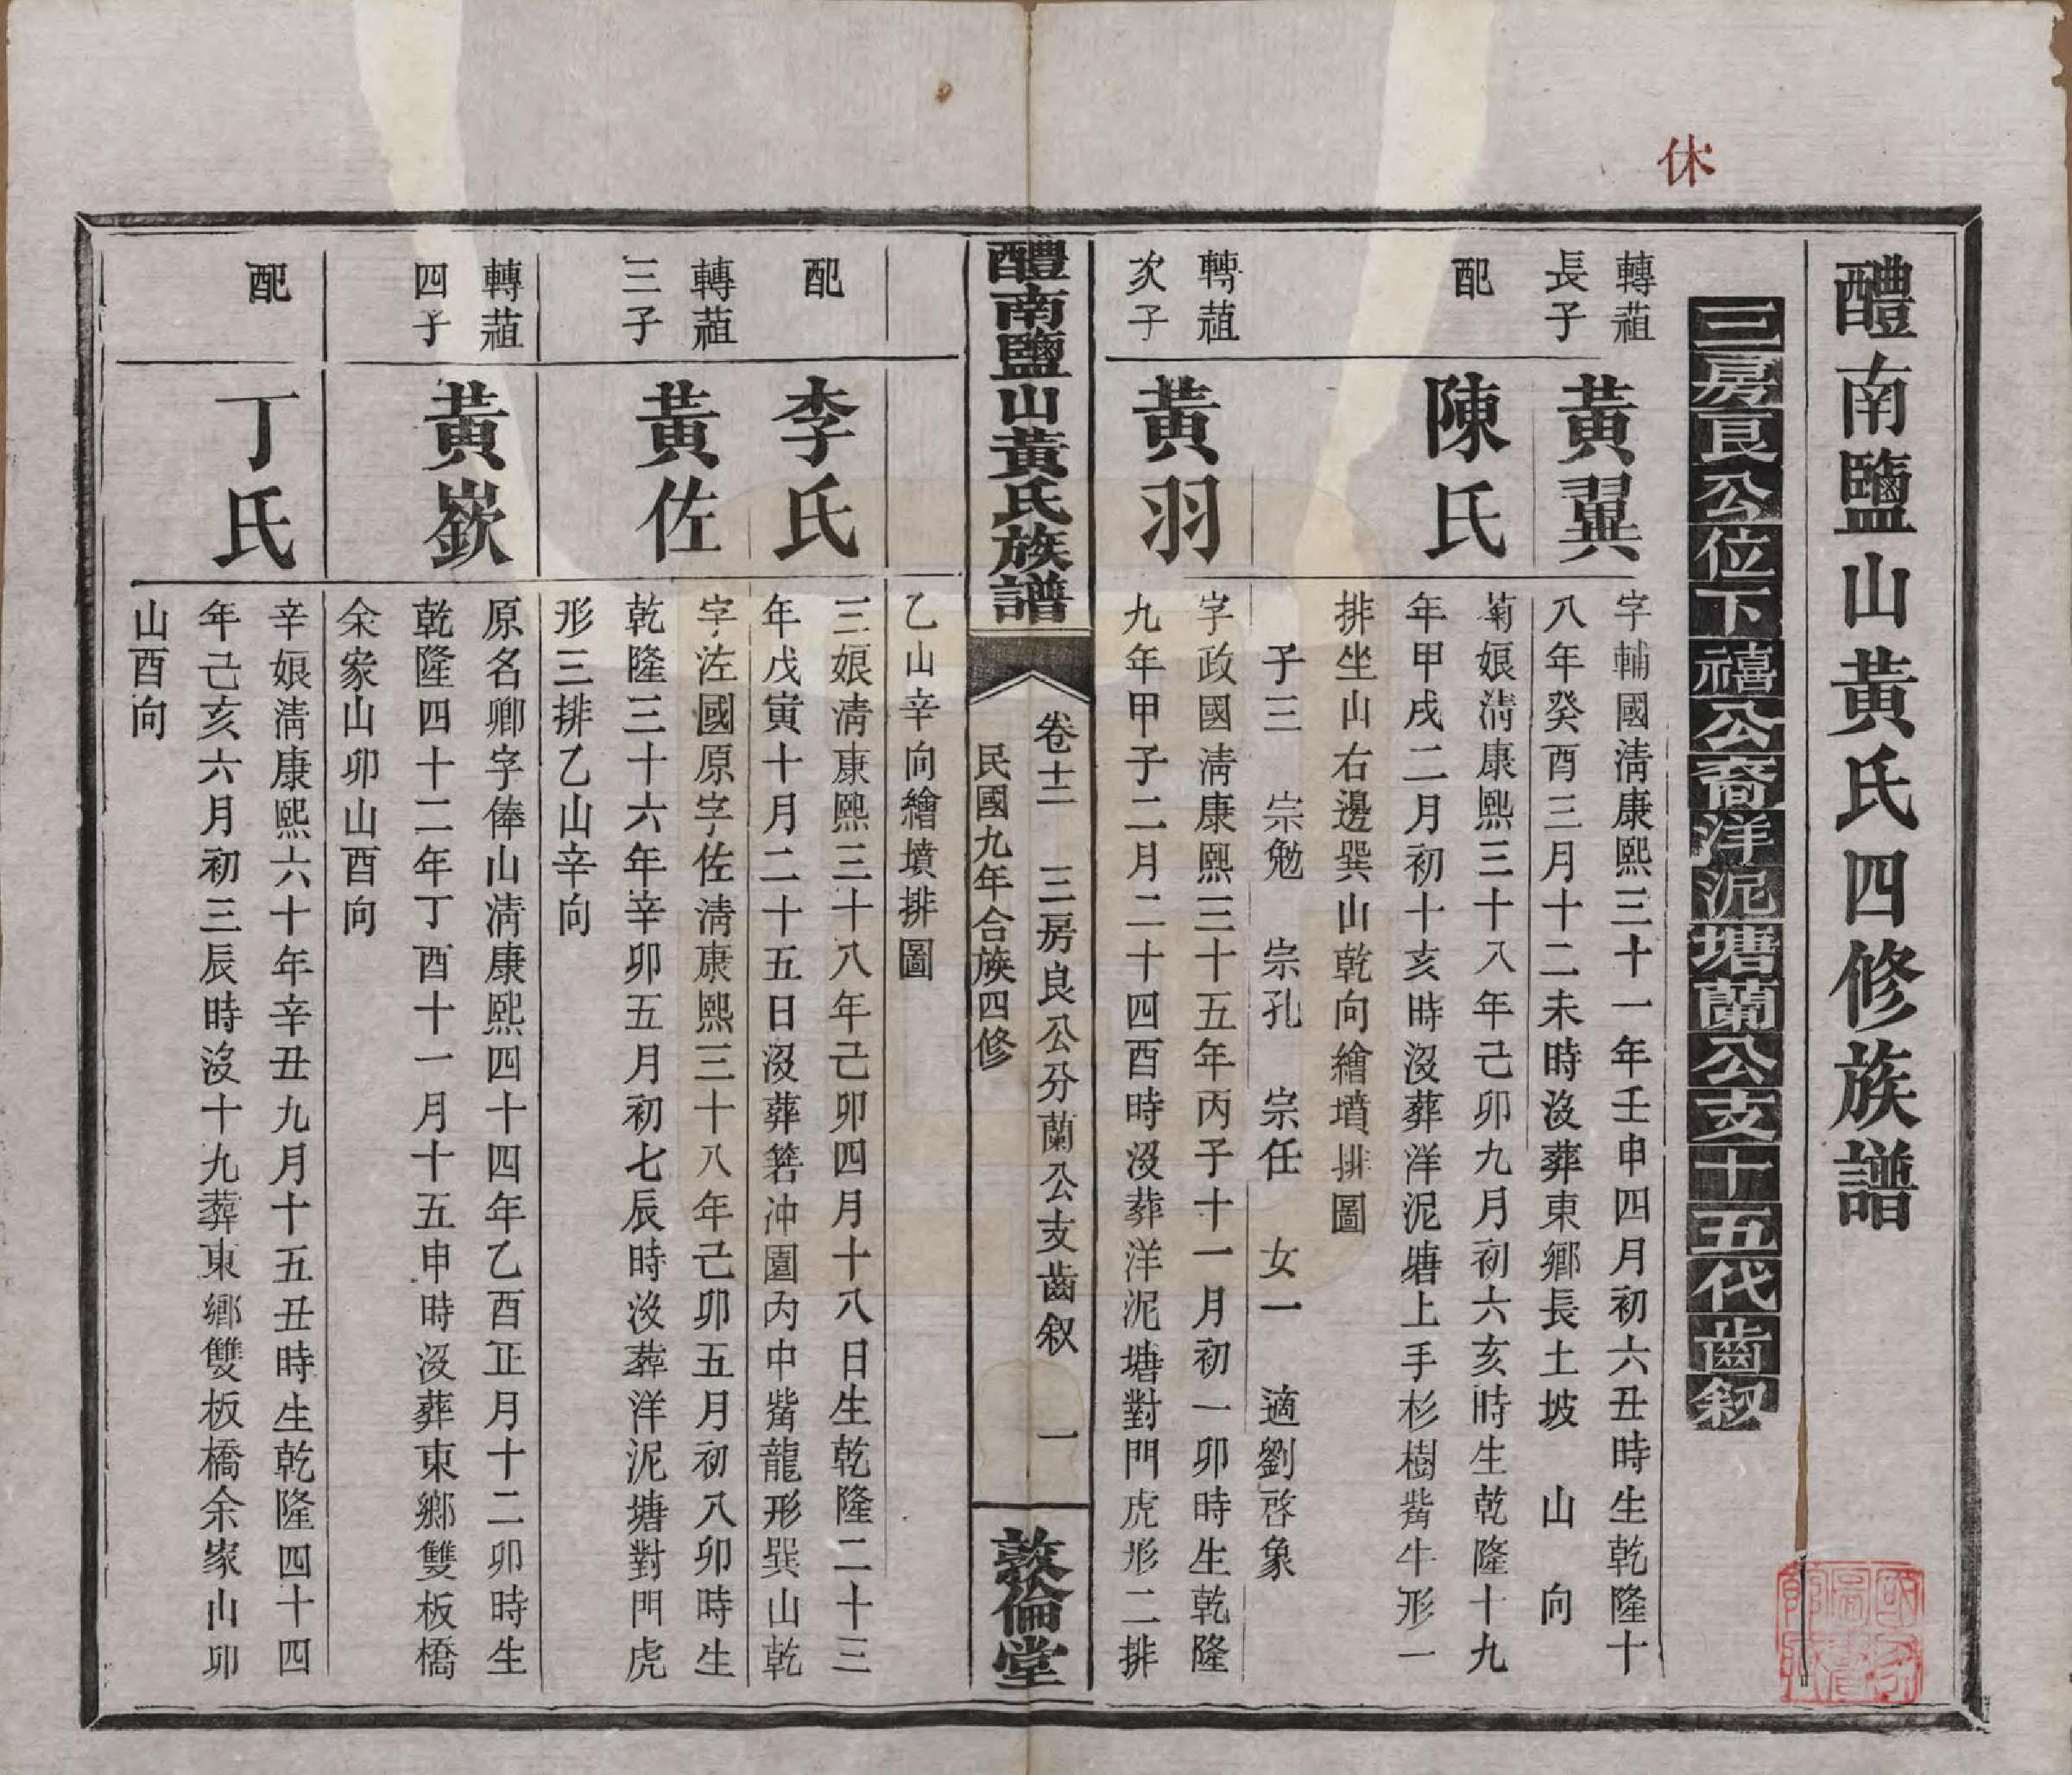 休
醴南鹽山黃氏四修族譜
三房良公位下禧公裔洋泥塘蘭公支十五代齒叙
轉菹
長子
黃翼
字輔國淸康熙三十一年壬申四月初六丑時生乾隆十
八年癸酉三月十二未時沒葬東鄉長土坡 山 向
配
陳氏
菊娘淸康熙三十八年己卯九月初六亥時生乾隆十九
年甲戌二月初十亥時沒葬洋泥塘上手杉樹嘴牛形一
排坐山右邊巽山乾向繪墳排圖
子三 宗勉 宗孔 宗任 女一 適劉啓象
轉菹
次子
黃羽
字政國淸康熙三十五年丙子十一月初一卯時生乾隆
九年甲子二月二十四酉時沒葬洋泥塘對門虎形二排
醴南鹽山黃氏族譜
卷十二 三房良公分蘭公支齒叙 一
民國九年合族四修
敦倫堂
乙山辛向繪墳排圖
配
李氏
三娘淸康熙三十八年己卯四月十八日生乾隆二十三
年戊寅十月二十五日沒葬箬冲園內中嘴龍形巽山乾
轉菹
三子
黃佐
字㳝國原字佐淸康熙三十八年己卯五月初八卯時生
乾隆三十六年辛卯五月初七辰時沒葬洋泥塘對門虎
形三排乙山辛向
轉菹
四子
黃嶔
原名卿字俸山淸康熙四十四年乙酉正月十二卯時生
乾隆四十二年丁酉十一月十五申時沒葬東鄉雙板橋
余家山卯山酉向
配
丁氏
辛娘淸康熙六十年辛丑九月十五丑時生乾隆四十四
年己亥六月初三辰時沒十九葬東鄉雙板橋余家山卯
山酉向